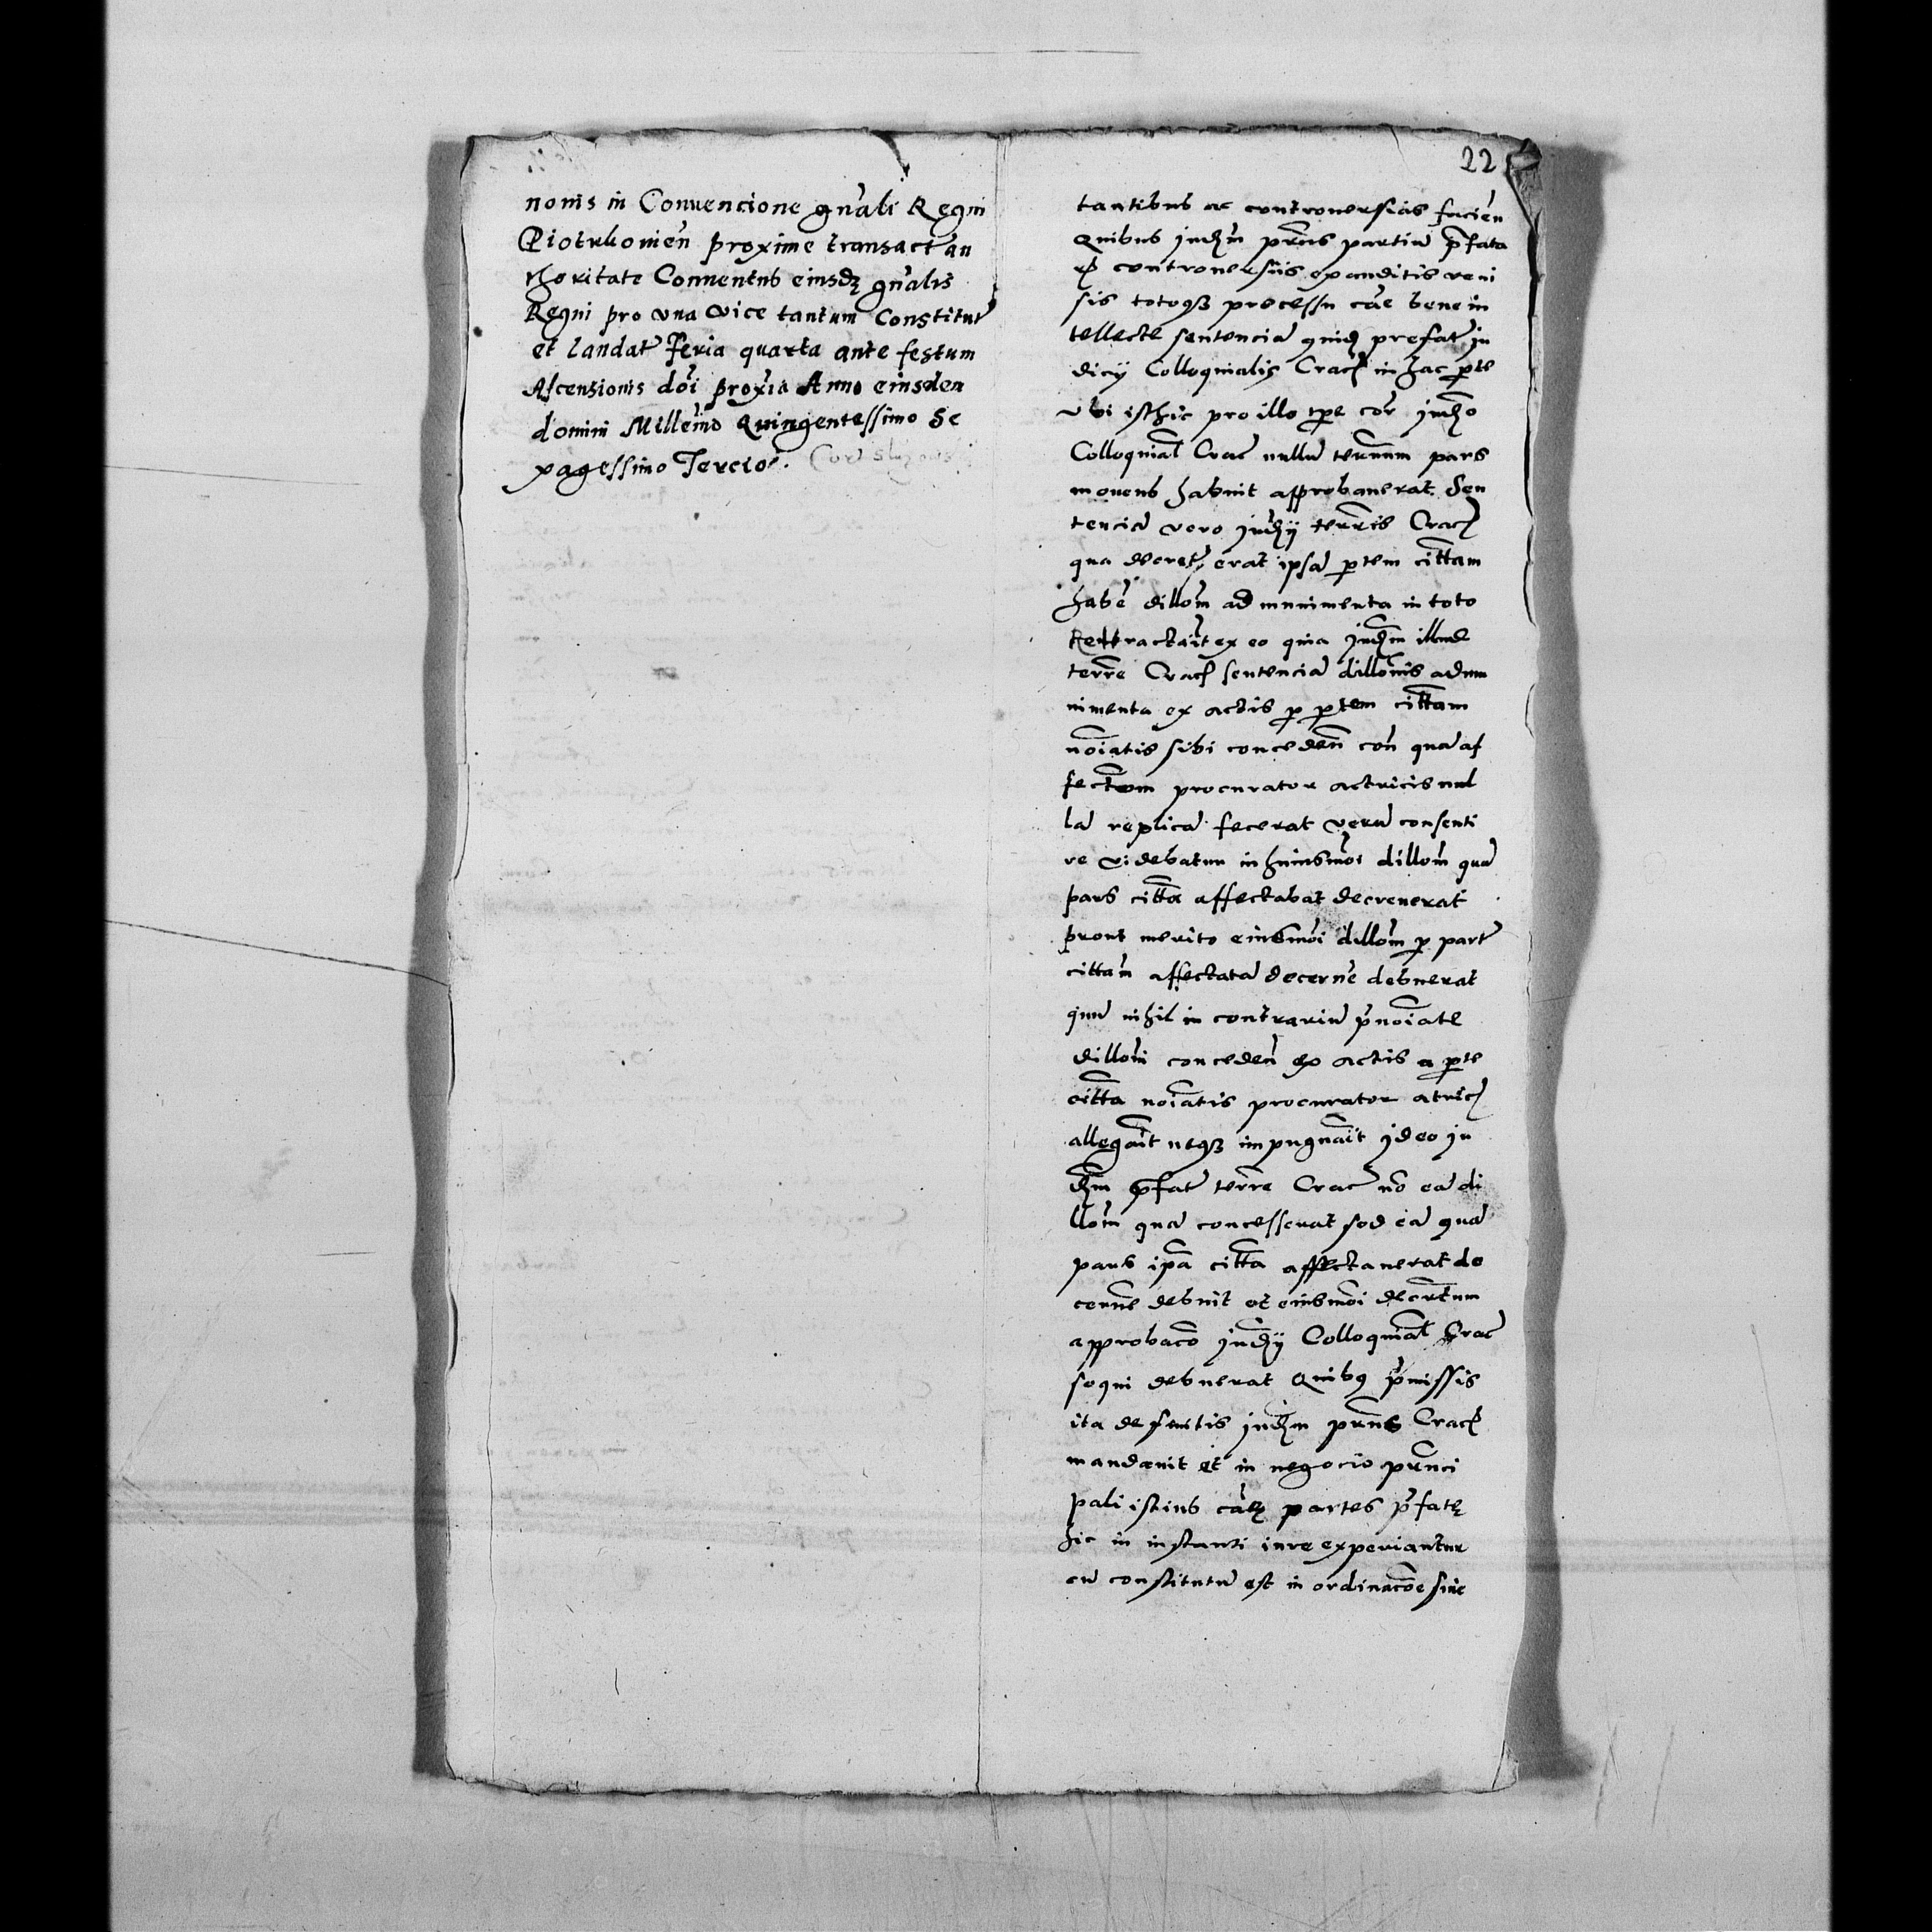 nonis in Conuencione gn̄ali Regni
Piotrkouien̄ proxime transact au
thoritate Conuentus eiusdē gn̄alis
Regni pro vna vice tantum Constitut
et laudat feria quarta ante festum
Ascensionis dōi proxīa Anno eiusdem
domini Millēmo Quingentessimo Se
xagessimo Tercio.
22
tantibus ac controuersias facien̄
Quibus judm̄ pr̄ns partiū p̄fata
rū controuersiis exauditis reui
sis totoq3 processu cāe bene in
tellecte sentenciā quid prefat ju
dicÿ Colloquialis Crac in hac p̄te
vbi isthic pro illo tpē cor judo
Colloquial Crac nullū termnum pars
mouens habuit approbauerat Sen
tenciā vero judÿ terrīs Crac
qua decret erat ipsā p̄tem cittam
habē dillom̄ ad munimenta in toto
Rettractāit ex eo quia judm̄ illud
terrē Crac sentenciā dillonis ad mu
nimenta ex actis p̄ p̄tem cittam
noīatis sibi conceden̄ con̄ quā af
fectem procurator actricis nul
lā replicā fecerat verū consenti
re videbatur in huiusmōi dillom̄ quā
pars citta affectabat decreuerat
prout merito eiusmōi dillom̄ p̄ part
cittam̄ affectatā decerne debuerat
quū nihil in contrariū p̄noīate
dillonī conceden̄ ex actis a p̄te
citta noīatis procurator atric
allegāit neq3 impugnāit jdeo ju
dm̄ p̄fat terrē Crac nō eā di
llom̄ quā concesserat sed eā quā
pars ip̄a citta affectauerat de
cerne debuit et eiusmōi decretum
approbacō judÿ Colloquial Crac
sequi debuerat Quibus p̄missis
ita judm̄ pr̄ns Crac
mandauit et in negocio prn̄ci
pali istius cāe partes p̄fate
hic in instanti iure experiantur
cū constitutū est in ordinacōe siue